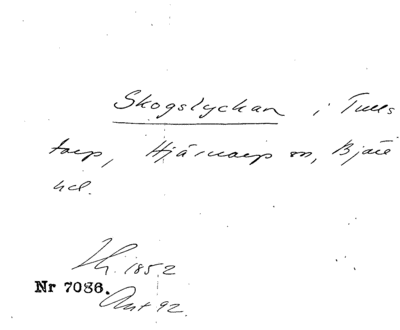 Skogslyckan i Tulls
torp, Hjärnarp sn, Bjäre
hd.
Hf. 1852
Nr 7086.
Ant 92.